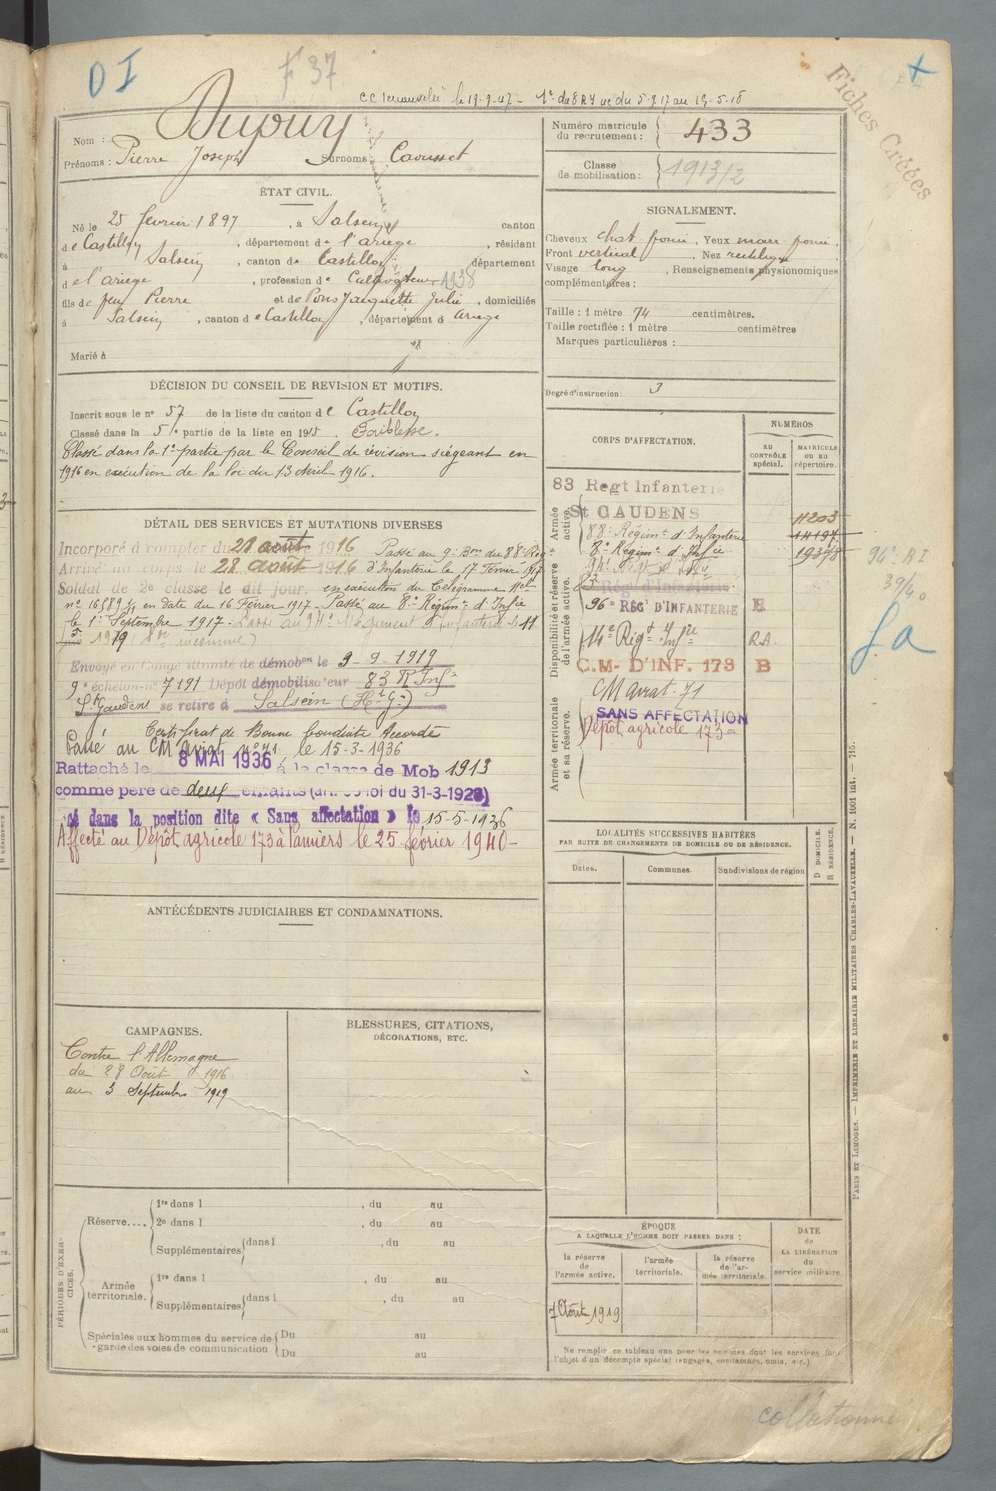 D I
F 37
Fiches Créées
Nom : Dupuy
Prénoms : Pierre Joseph Surnoms : Caousset
Numéro matricule du recrutement : 433
Classe de mobilisation : 1913/2
ÉTAT CIVIL.
Né le 25 février 1897, à Salsein canton
de Castillon, département de l'ariege, résidant
à Salsein, canton de Castillon département
d e l'ariege, profession de Cultivateur 1938
fils de feu Pierre et de Pons Jacquette Julie, domiciliés
à Salsein, canton d e Castillon, département d Ariege
Marié à
SIGNALEMENT.
Cheveux chat foncé, Yeux marr foncé.
Front vertical, Nez rectiligne
Visage long, Renseignements physionomiques
complémentaires :
Taille : 1 mètre 74 centimètres.
Taille rectifiée : 1 mètre centimètres
Marques particulières :
Degré d'instruction : 3
DÉCISION DU CONSEIL DE REVISION ET MOTIFS.
Inscrit sous le n° 57 de la liste du canton d e Castillon
Classé dans la 5e partie de la liste en 1915. Faiblesse.
Classé dans la 1e partie par le Conseil de révision siégeant en
1916 en exécution de la loi du 13 Avril 1916.
DÉTAIL DES SERVICES ET MUTATIONS DIVERSES
Incorporé à compter du 28 août 1916 Passé au 9e Bon du 88e Regt
Arrivé au corps le 28 Août 1916 d'Infanterie le 17 Février 1917
Soldat de 2e classe le dit jour. en exécution du Télégramme Mel
n° 16589 en date du 16 Février 1917 - Passé au 8e Régimt d'Infie
le 1er Septembre 1917.
1919
Envoyé en Congé illimité de démobon le 3-9-1919
9e échelon n° 7191 Dépôt démobilisateur 83 R Infie
St Gaudens se retire à Salsein (Hte Gne)
Certificat de Bonne Conduite Accordé
Passé au CM Ariat. n° 71 le 15-3-1936
Rattaché le 8 MAI 1936 à la classe de Mob 1913
comme père de deux enfants (art. loi du 31-3-1928)
dans la position dite « Sans affectation » le 15-5-1936
Affecté au Dépôt agricole 173 à Pamiers le 25 février 1940 -
CORPS D'AFFECTATION.
NUMÉROS
AU CONTRÔLE spécial.
MATRICULE OU AU répertoire.
Armée active.
83 Regt Infanterie
St GAUDENS
11203
88e Régimt d'Infanterie 14197
8e Régimt d'Infie 19378
Disponibilité et réserve de l'armée active.
83 Rég d'Infanterie
96e RÉGt D'INFANTERIE E
14e Régt Infie R.A.
C.M- D'INF. 173 B
Armée territoriale et sa réserve.
CM Ariat. 71
SANS AFFECTATION
Dépôt agricole 173e
39/40
LOCALITÉS SUCCESSIVES HABITÉES
PAR SUITE DE CHANGEMENTS DE DOMICILE OU DE RÉSIDENCE.
Dates. Communes. Subdivisions de région
D DOMICILE.
R RÉSIDENCE.
ANTÉCÉDENTS JUDICIAIRES ET CONDAMNATIONS.
CAMPAGNES.
Contre l'Allemagne
du 28 Août 1916
au 3 Septembre 1919
BLESSURES, CITATIONS,
DÉCORATIONS, ETC.
PÉRIODES D'EXERCICES.
Réserve.... 1re dans l , du au
2e dans l , du au
Supplémentaires dans l , du au
Armée territoriale. 1re dans l , du au
Supplémentaires dans l , du au
Spéciales aux hommes du service de garde des voies de communication Du au
Du au
ÉPOQUE
A LAQUELLE L'HOMME DOIT PASSER DANS :
la réserve de l'armée active.
l'armée territoriale.
la réserve de l'armée territoriale.
DATE de LA LIBÉRATION du service militaire.
7 Août 1919
Ne remplir ce tableau que pour les hommes dont les services font
l'objet d'un décompte spécial (engagés, condamnés, omis, etc.)
PARIS ET LIMOGES. — IMPRIMERIE ET LIBRAIRIE MILITAIRES CHARLES-LAVAUZELLE. — N. 1001 int. — 715.
collationné